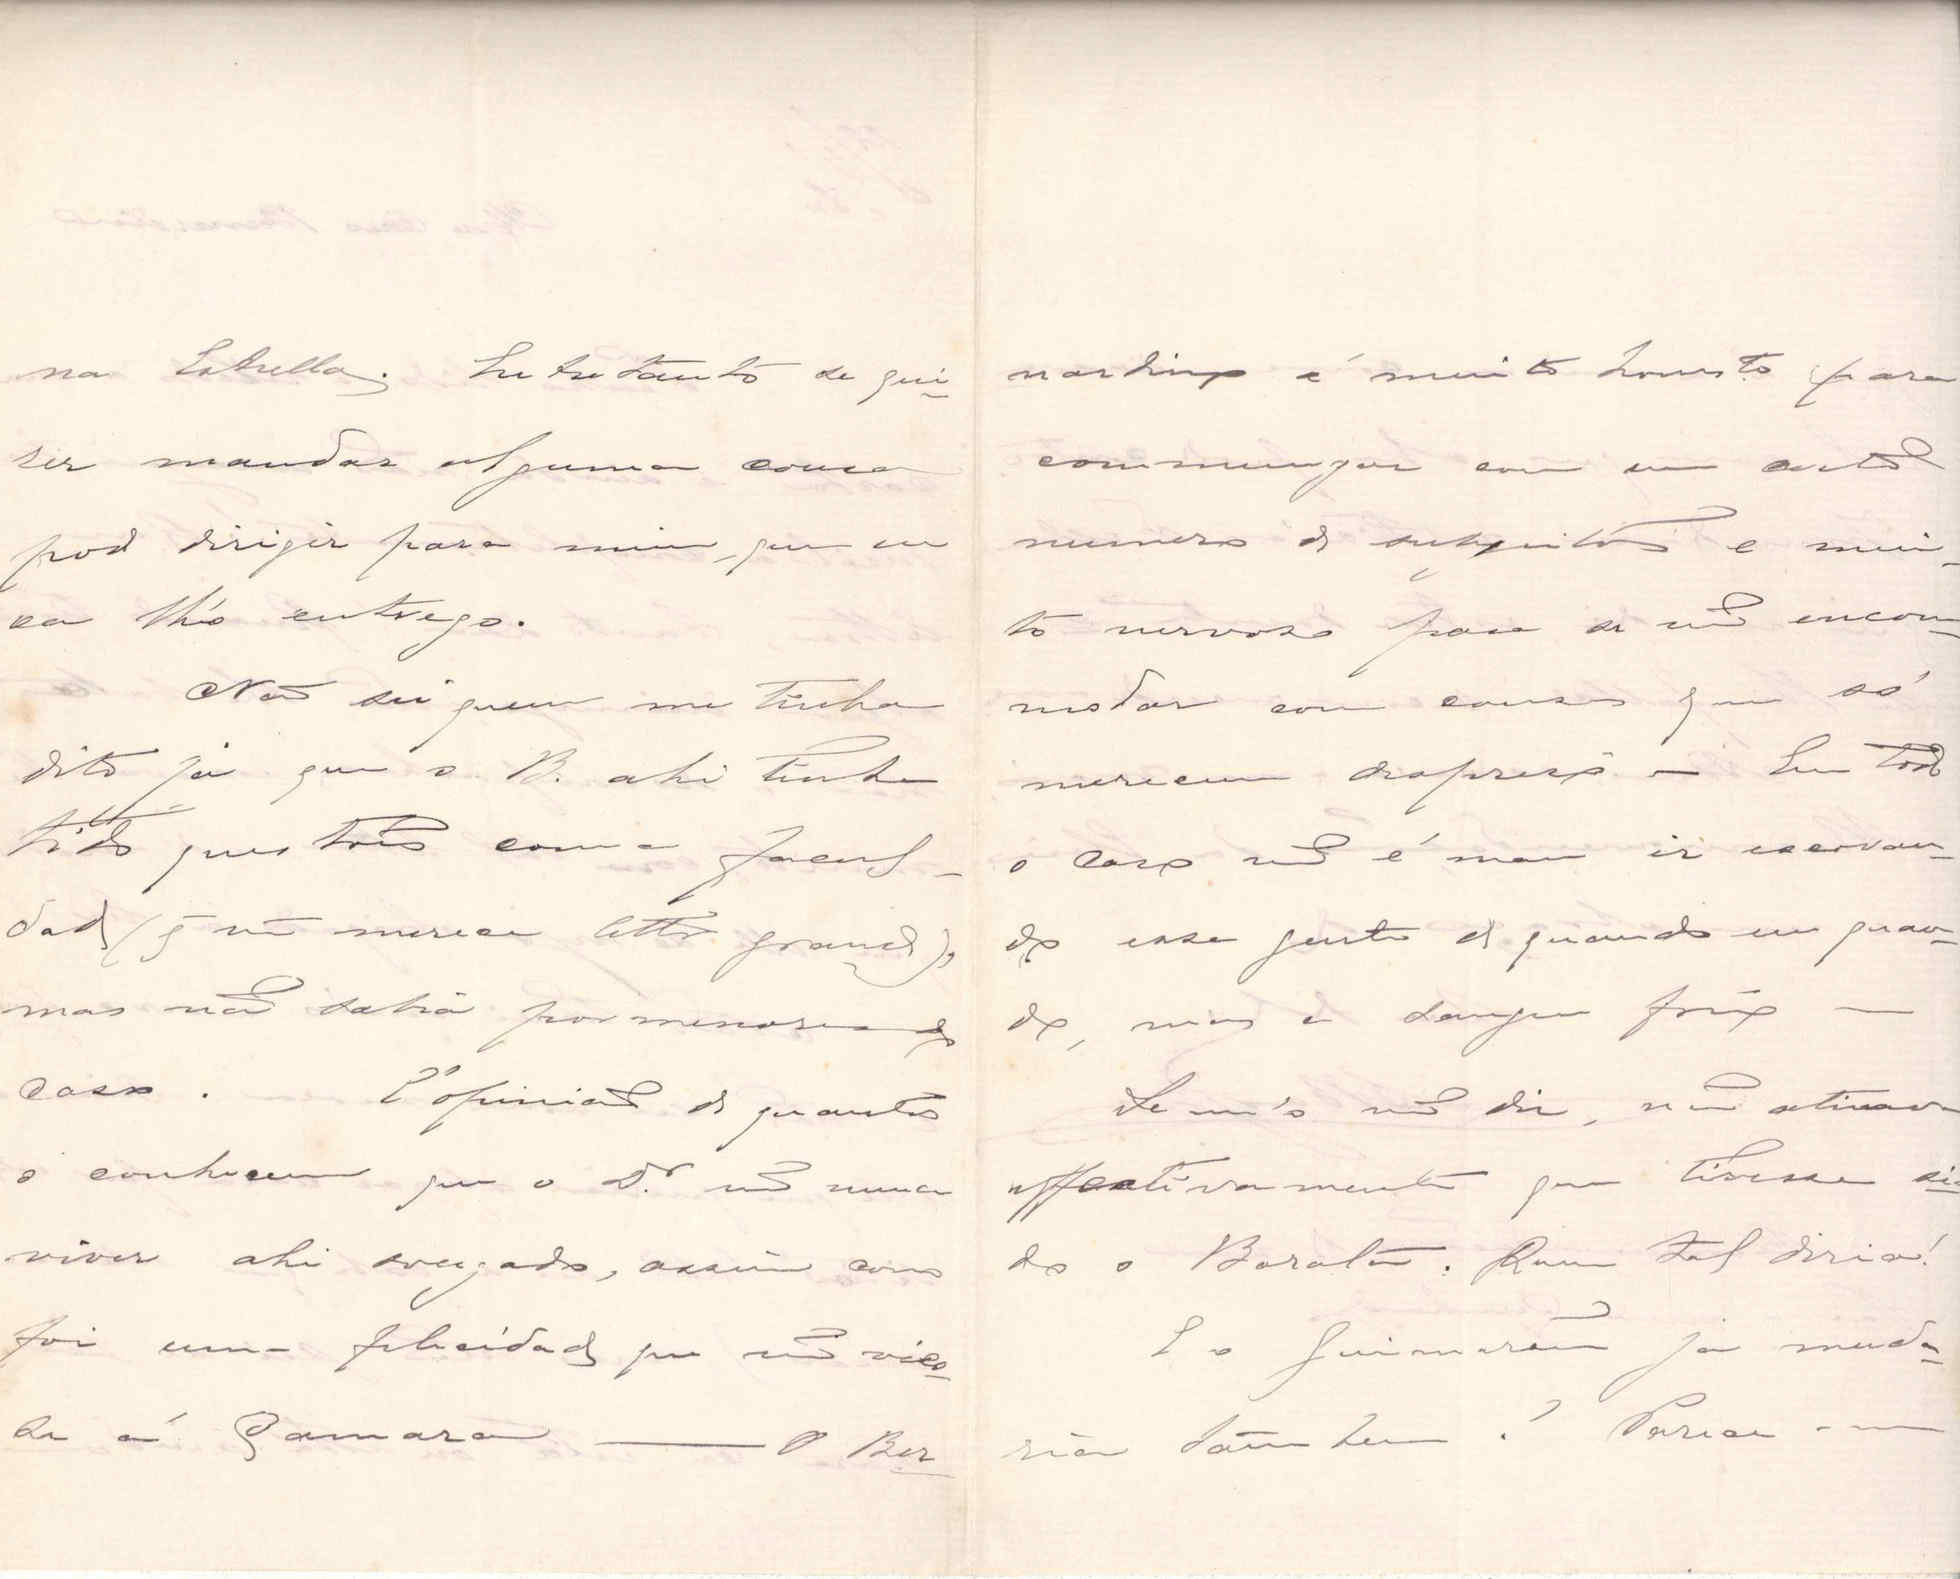 na Estrella. Entretanto se qui-
zer mandar alguma cousa
pode dirigir para mim, que eu
ca lh'o entrego.
Não sei quem me tinha
dito já que o B. ahi tinha
tido questões com a facul-
dade (q̄ não merece lettra grande),
mas não sabia pormenores do
caso. E' opinião de quantos
o conhecem que o Dr. não nunca
viver ahi socegado, assim como
foi uma felicidade que não vies-
se á Camara — O Ber
nardino é muito honesto para
commungar com um certo
numero de sujeitos e mui-
to nervoso para se não encom-
modar com cousas que só
merecem despreso — Em todo
o caso não é mau ir escovan-
do essa gente de quando em quan-
do, mas a sangue frio —
Se m'o não diz, não atinava
effectivamente que tivesse si-
do o Quem tal diria!
E o Guimarães já muda-
ria tambem? Parece-me